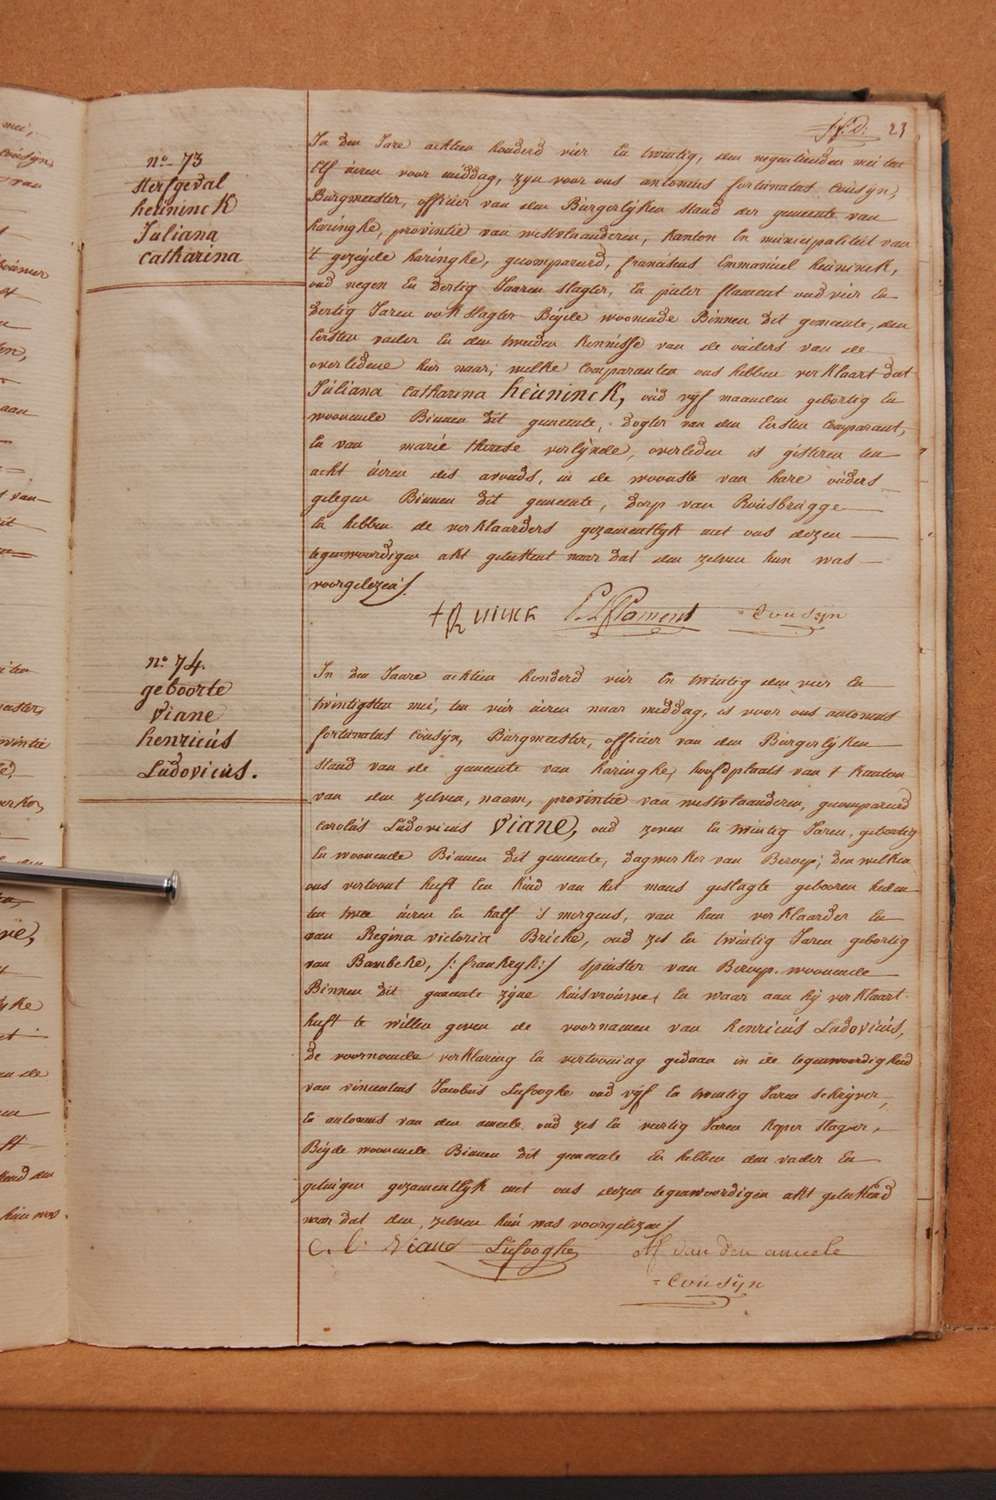 23
no 73
sterfgeval
heüninck
Juliana
Catharina
In den Jare achtien honderd vier En twintig, den negentienden mei ten
Elf üeren voor middag, zyn voor ons antonius fortunatus Coüsyn,
Bürgmeester, officier van den Bürgerlyken stand der gemeente van
haringhe, provintie van westvlaanderen, kanton En münicipaliteit van
't gezeijde haringhe, gecompareerd, franciscus Emmanüel heüninck,
oüd negen En dertig Jaaren slagter, En pieter flament oüd vier En
dertig Jaren ook slagter Beijde woonende Binnen dit gemeente, den
Eersten vader En den tweeden kennisse van de oüders van de
overledene hier naar, welke Comparanten ons hebben verklaart dat
Jüliana Catharina heüninck, oüd vyf maanden gebortig En
woonende Binnen dit gemeente, dogter van den Eersten Comparant,
En van marie therese verlijnde, overleden is gisteren ten
acht üeren des avonds, in de woonste van hare oüders
gelegen Binnen dit gemeente, dorp van Roüsbrügge
En hebben de verklaarders gezamentlyk met ons dezen
tegenwoordigen akt geteekent naar dat den zelven hun was
voorgelezen/.
P. L. flament Cousyn
no 74.
geboorte
Viane
henricüs
Ludovicüs.
In den Jaare achtien honderd vier En twintig den vier En
twintigsten mei, ten vier üeren naar middag, is voor ons antonius
fortünatus Coüsÿn, Bürgmeester, officier van den Bürgerlyken
stand van de gemeente van haringhe, hoofdplaats van 't kanton
van den zelven, naam, provintie van westvlaanderen, gecompareerd
carolüs Ludovicus Viane, oud zeven En twintig Jaren, gebortig
En woonende Binnen dit gemeente, dagwerker van Beroep; den welken
ons vertoont heeft Een kind van het mans geslagte gebooren heden
ten twee üeren En half 's morgens, van hem verklaarder En
van Regina victoria Bricke, oud zes En twintig Jaren gebortig
van Bambeke, /: frankryk :/ spinster van Beroep woonende
Binnen dit gemeente zyne hüisvroüwe, En waar aan hij verklaart
heeft te willen geven de voornamen van henricüs Ludovicüs,
de voornoemde verklaring En vertooning gedaan in de tegenwoordigheid
van vincentius Jacobus Lufooghe oud vijf En twintig Jaren schryver,
En antonius van den ameele oud zes En veertig Jaren koper slager,
Beijde woonende Binnen dit gemeente En hebben den vader En
getuigen gezamentlyk met ons dezen tegenwoordigen akt geteekend
naar dat den zelven hün was voorgelezen/
C. L. Viane Lufooghe Af van den ameele
Coüsÿn